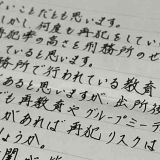 ないことだとも思います。
しかし、何度も再犯をしてい
再犯率の高さを刑務所のせ
います。
務所で行われている教育
あると思いますが、出所後
でも再教育やグループミーテ
があれば再犯リスクは
しょうか。